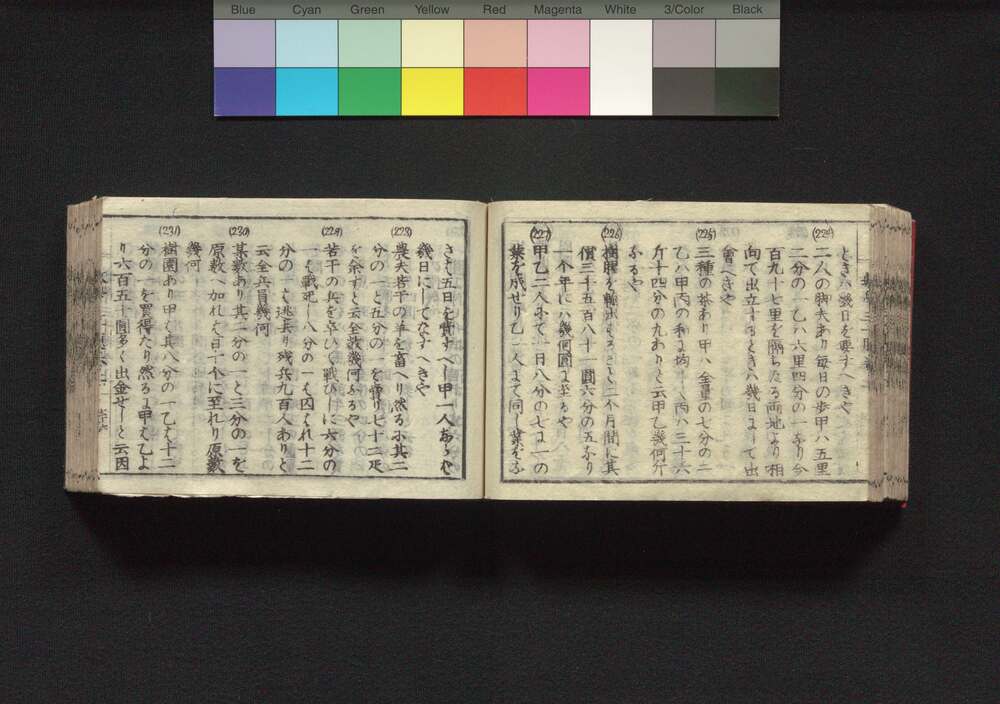 Blue Cyan Green Yellow Red Magenta White 3/Color Black
ときハ幾日を要すへきや
(224)
二人の脚夫あり毎日の歩甲ハ五里
二分の一乙ハ六里四分の一なり今
百九十七里を隔たる両地より相
向て出立するときハ幾日にして出
會へきや
(225)
三種の茶あり甲ハ全量の七分の二
乙ハ甲丙の和に均しく丙ハ三十六
斤十四分の九ありと云甲乙幾何斤
なるや
(226)
樹膠を輸出することを一个月間に其
價三千五百八十一圓六分の五なり
一个年にハ幾何圓に至るや
(227)
甲乙二人にて一日八分の七に一の
業を成せり乙一人にて同し業をな
さは五日を費すへし甲一人ならは
幾日にしてなすへきや
(228)
農夫若干の羊を畜へり然るに其二
分の一と五分の一を售り七十二疋
を余すと云全数幾何なるや
(229)
若干の兵を率ひて戦ひしに六分の
一は戦死し八分の一は囚はれ十二
分の一は逃兵り残兵九百人ありと
云全兵員幾何
(230)
某数あり其二分の一と三分の一を
原数へ加れは百一十个に至れり原数
幾何
(231)
樹園あり甲は其八分の一乙は十二
分の一を買得たり然るに甲は乙よ
り六百五十圓多く出金せしと云因